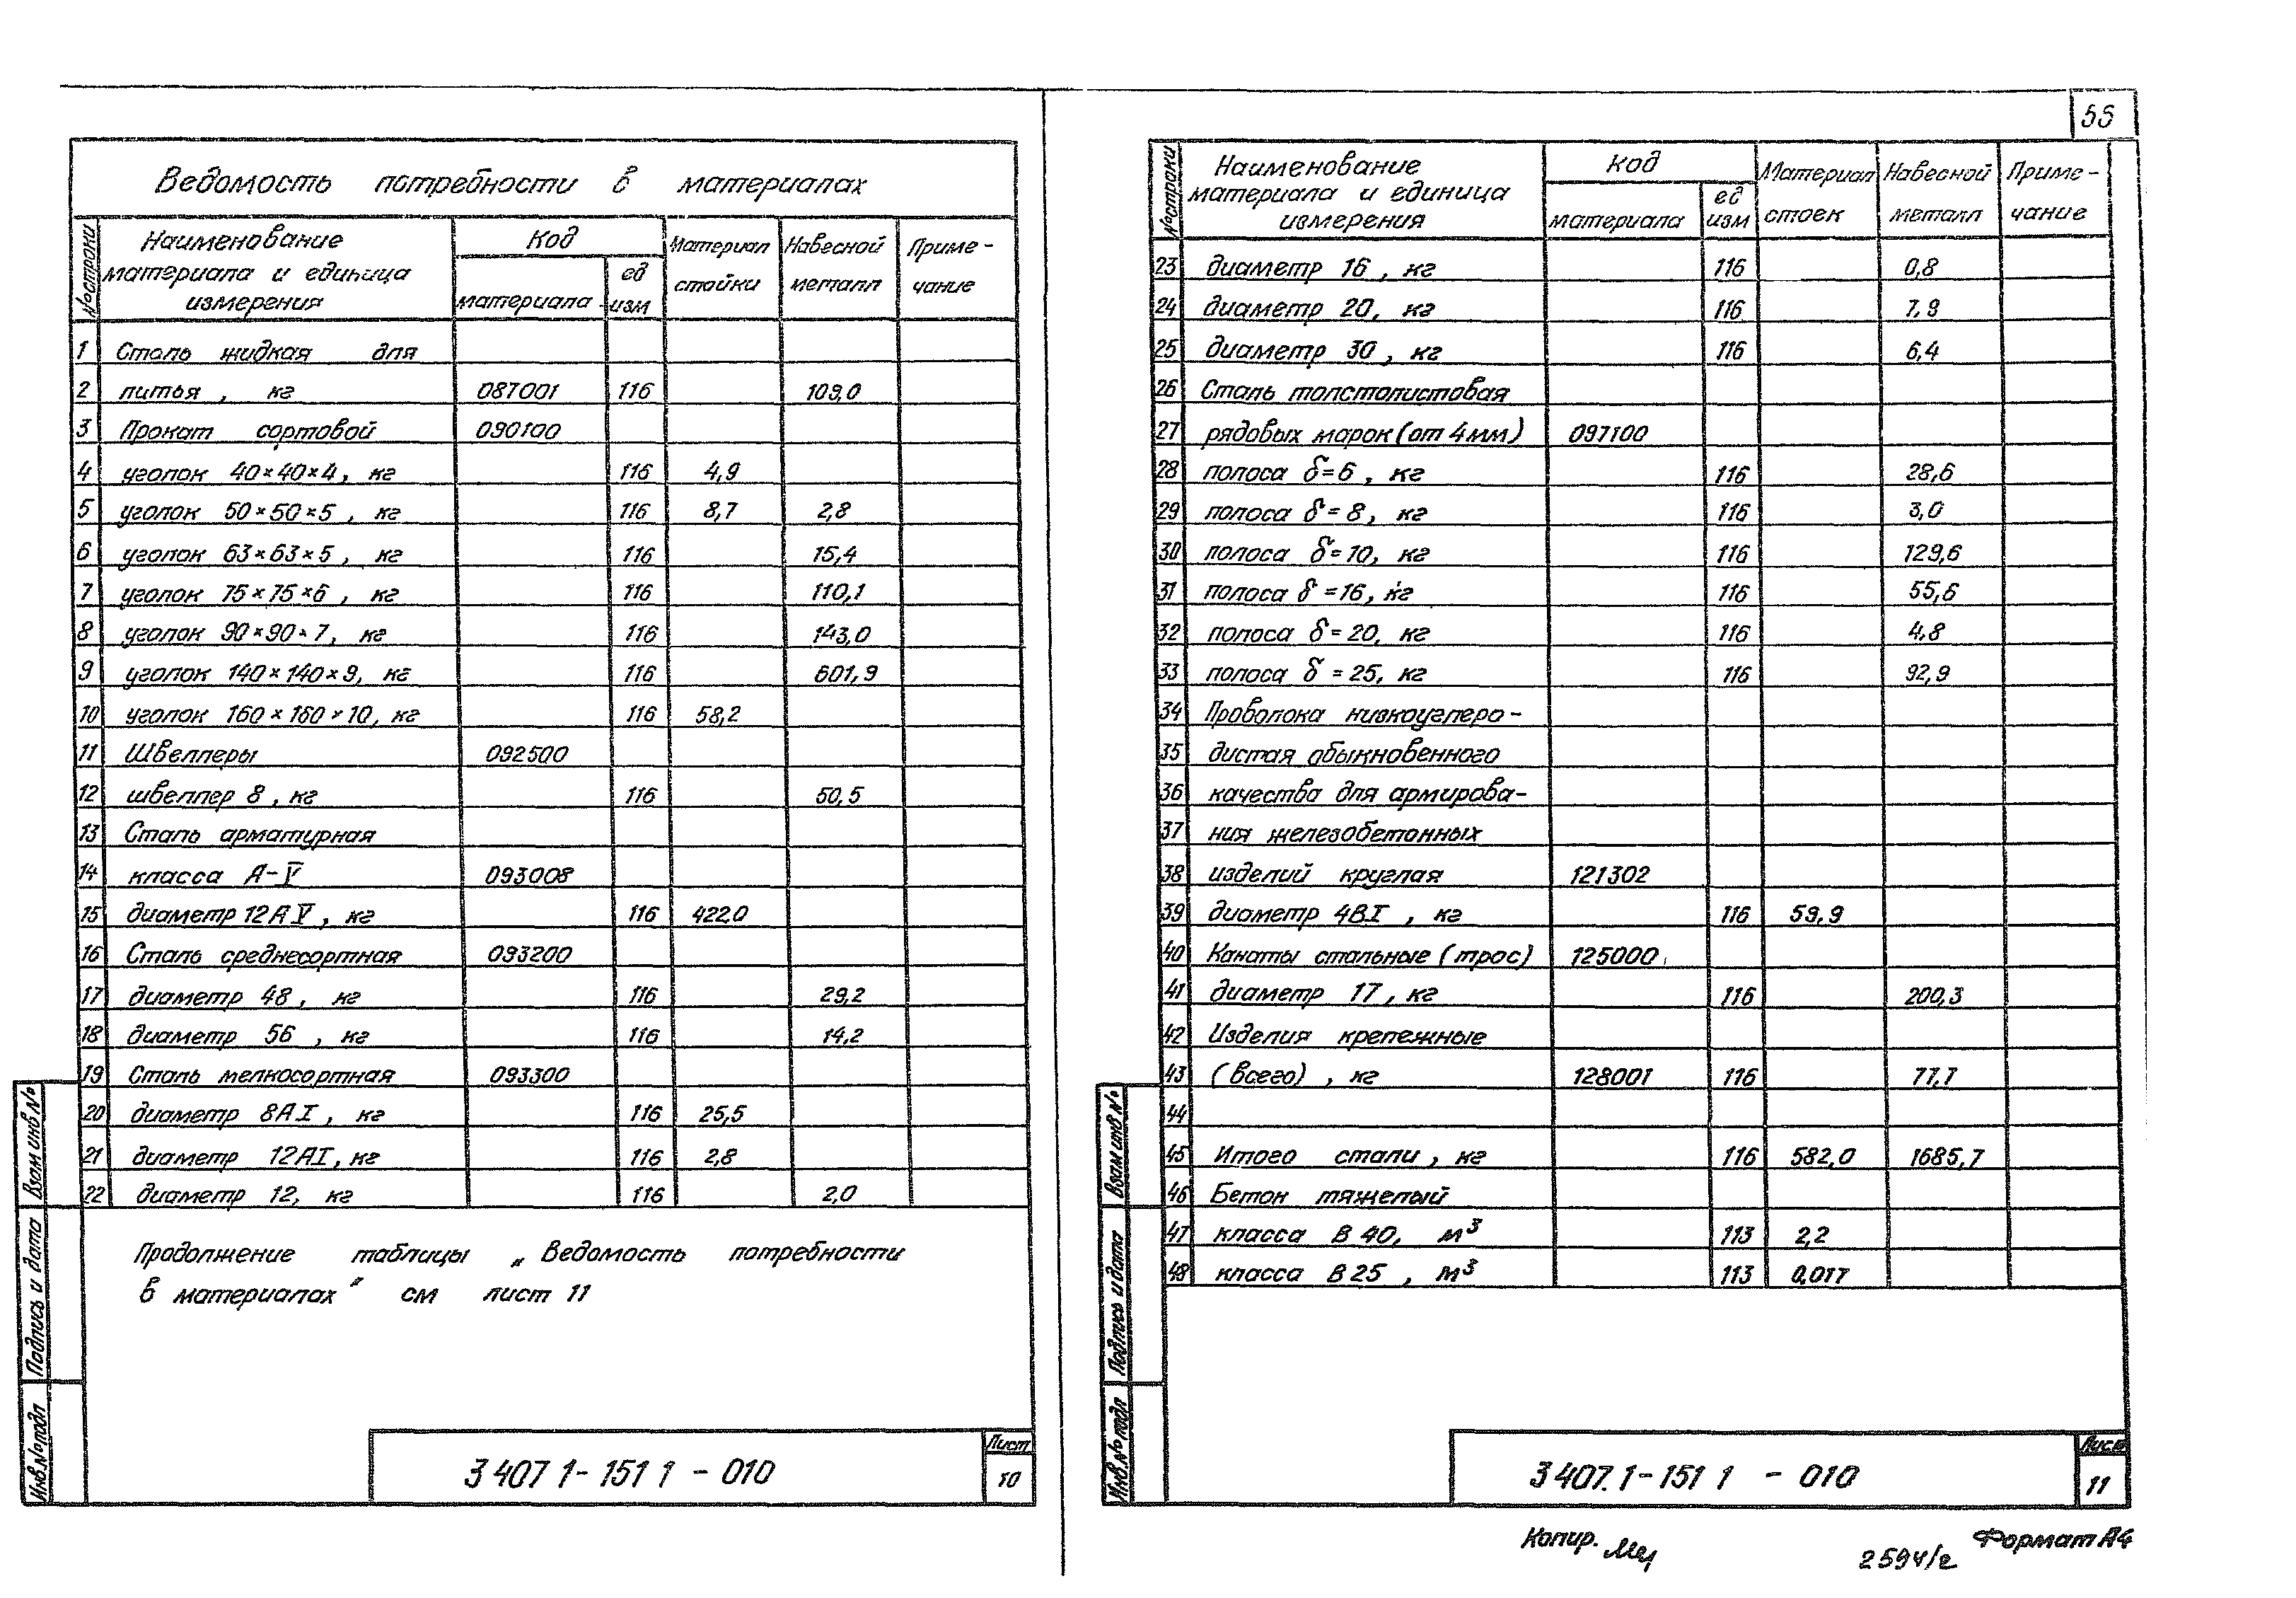 56
Ведомость потребности в материалах
№ строки
Наименование материала и единица измерения
Код
материала
ед изм
Материал стойки
Навесной металл
Примечание
1 Сталь жидкая для
2 литья , кг 087001 116 109,0
3 Прокат сортовой 090100
4 уголок 40×40×4, кг 116 4,9
5 уголок 50×50×5 , кг 116 8,7 2,8
6 уголок 63×63×5 , кг 116 15,4
7 уголок 75×75×6 , кг 116 110,1
8 уголок 90×90×7, кг 116 143,0
9 уголок 140×140×9, кг 116 601,9
10 уголок 160×160×10, кг 116 58,2
11 Швеллеры 092500
12 швеллер 8 , кг 116 50,5
13 Сталь арматурная
14 класса А-V 093008
15 диаметр 12АV , кг 116 422.0
16 Сталь среднесортная 093200
17 диаметр 48 , кг 116 29,2
18 диаметр 56 , кг 116 14,2
19 Сталь мелкосортная 093300
20 диаметр 8АI , кг 116 25,5
21 диаметр 12АI, кг 116 2,8
22 диаметр 12, кг 116 2,0
Продолжение таблицы „Ведомость потребности
в материалах" см лист 11
Взам инв №
Подпись и дата
Инв.№ подл
3 407 1-151 1 - 010
Лист
10
№ строки
Наименование материала и единица измерения
Код
материала
ед изм
Материал стоек
Навесной металл
Приме-чание
23 диаметр 16 , кг 116 0,8
24 диаметр 20, кг 116 7,9
25 диаметр 30 , кг 116 6,4
26 Сталь толстолистовая
27 рядовых марок (от 4мм) 097100
28 полоса δ=6 , кг 116 28,6
29 полоса δ=8, кг 116 3,0
30 полоса δ=10, кг 116 129,6
31 полоса δ=16, кг 116 55,6
32 полоса δ=20, кг 116 4,8
33 полоса δ=25, кг 116 92,9
34 Проволока низкоуглеро-
35 дистая обыкновенного
36 качества для армирова-
37 ния железобетонных
38 изделий круглая 121302
39 диаметр 4ВI , кг 116 59,9
40 Канаты стальные (трос) 125000
41 диаметр 17, кг 116 200,3
42 Изделия крепежные
43 (всего) , кг 128001 116 77,7
44
45 Итого стали , кг 116 582,0 1685,7
46 Бетон тяжелый
47 класса В 40, м³ 113 2,2
48 класса В 25 , м³ 113 0,017
Взам инв №
Подпись и дата
Инв.№ подл
3 407.1-151 1 - 010
Лист
11
Копир.
2594/2
Формат А4